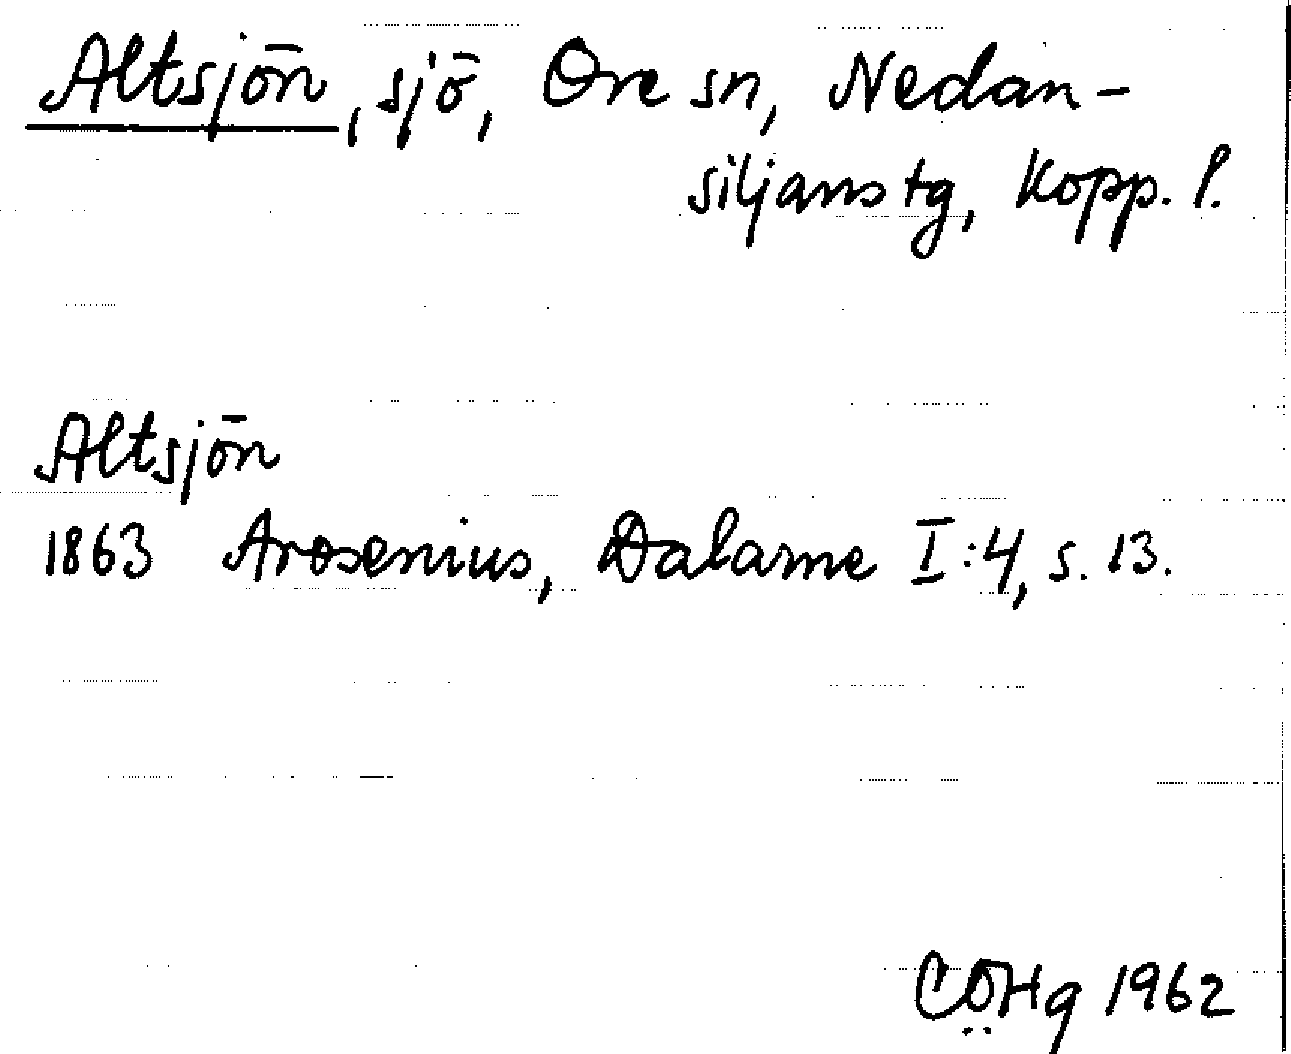 Altsjön, sjö, Ore sn, Nedan-
siljans tg, Kopp. l.
Altsjön
1863 Arosenius, Dalarne I:4, s. 13.
CÖHg 1962